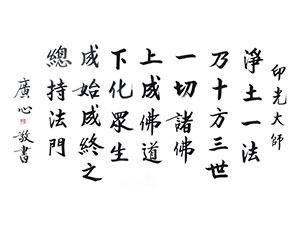 印光大師
淨土一法
乃十方三世
一切諸佛
上成佛道
下化眾生
成始成終之
總持法門
廣心敬書